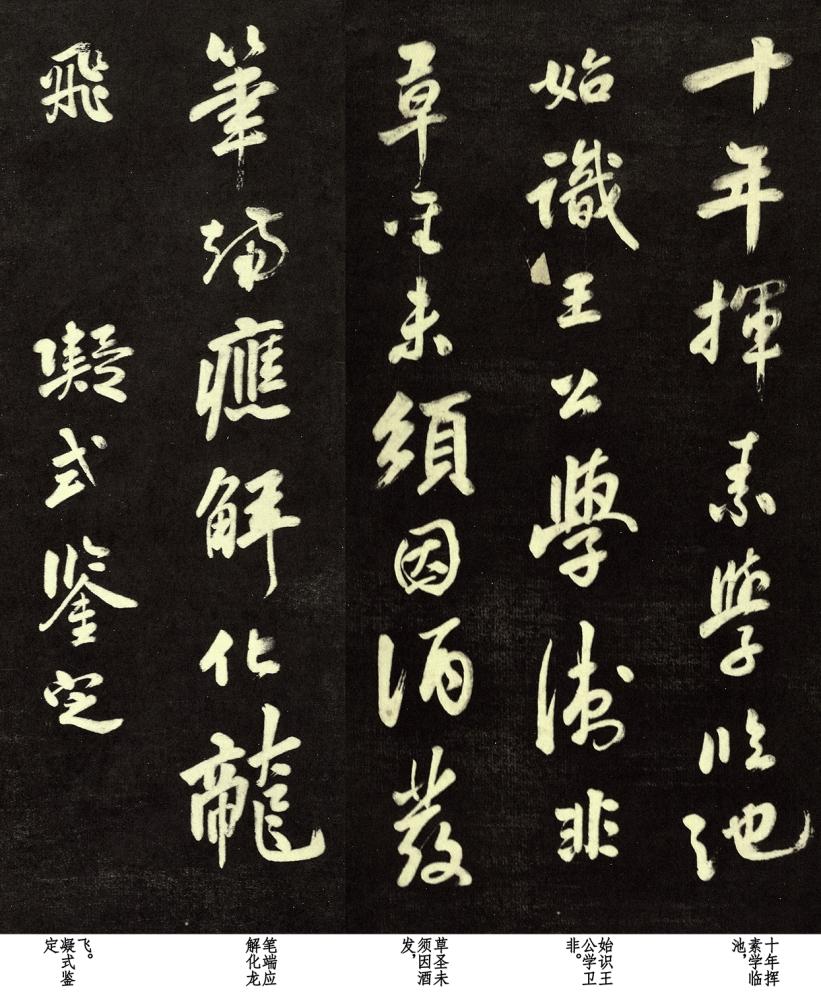 十年揮素學临池
始識王公學衛非
草圣未須因酒發
筆端應解化龍
飛
凝式鑒定
十年挥
素学临
池，
始识王
公学卫
非。
草圣未
须因酒
发，
笔端应
解化龙
飞。
凝式鉴
定